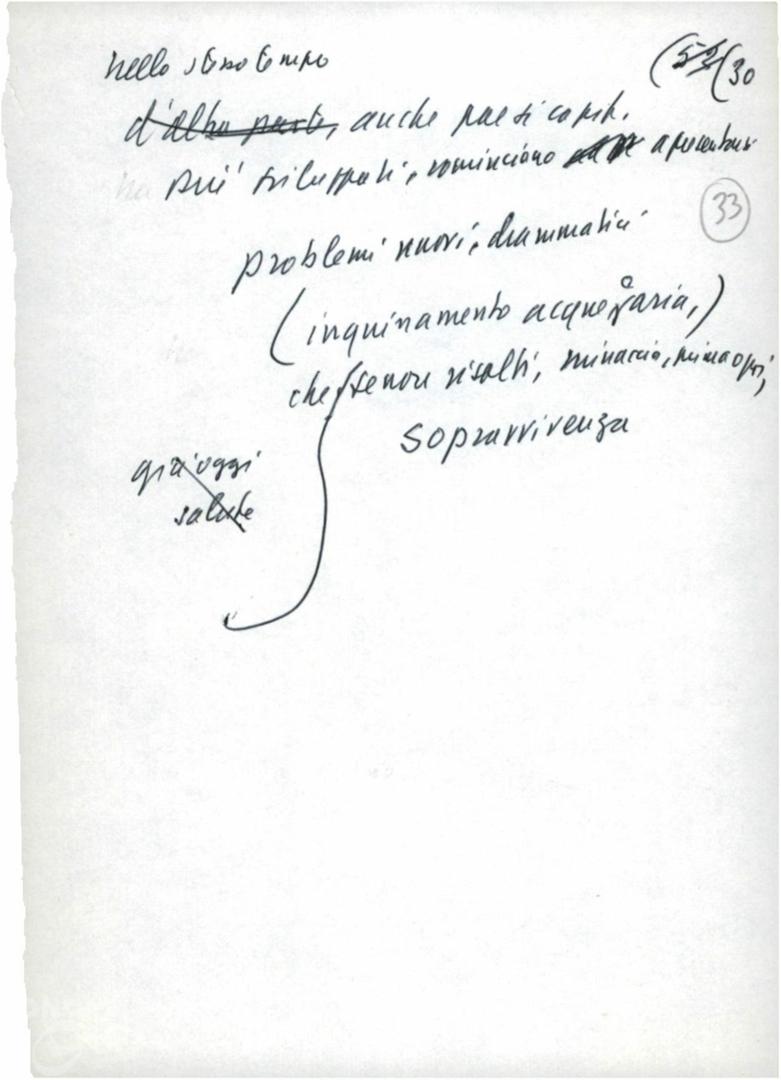 nello stesso tempo
(52 (30
d'altra parte, anche paesi capit.
più sviluppati, cominciano a presentarsi
33
problemi nuovi, drammatici
(inquinamento acque, aria,)
che, se non risolti, minaccia,
sopravvivenza
già oggi
salute